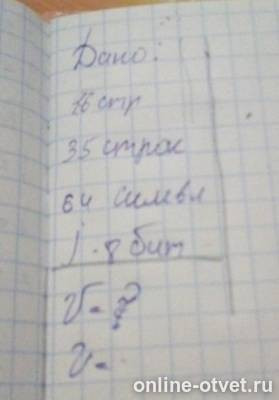 Дано:
16 стр
35 строк
64 символ
i - 8 бит
V - ?
V =
online-otvet.ru